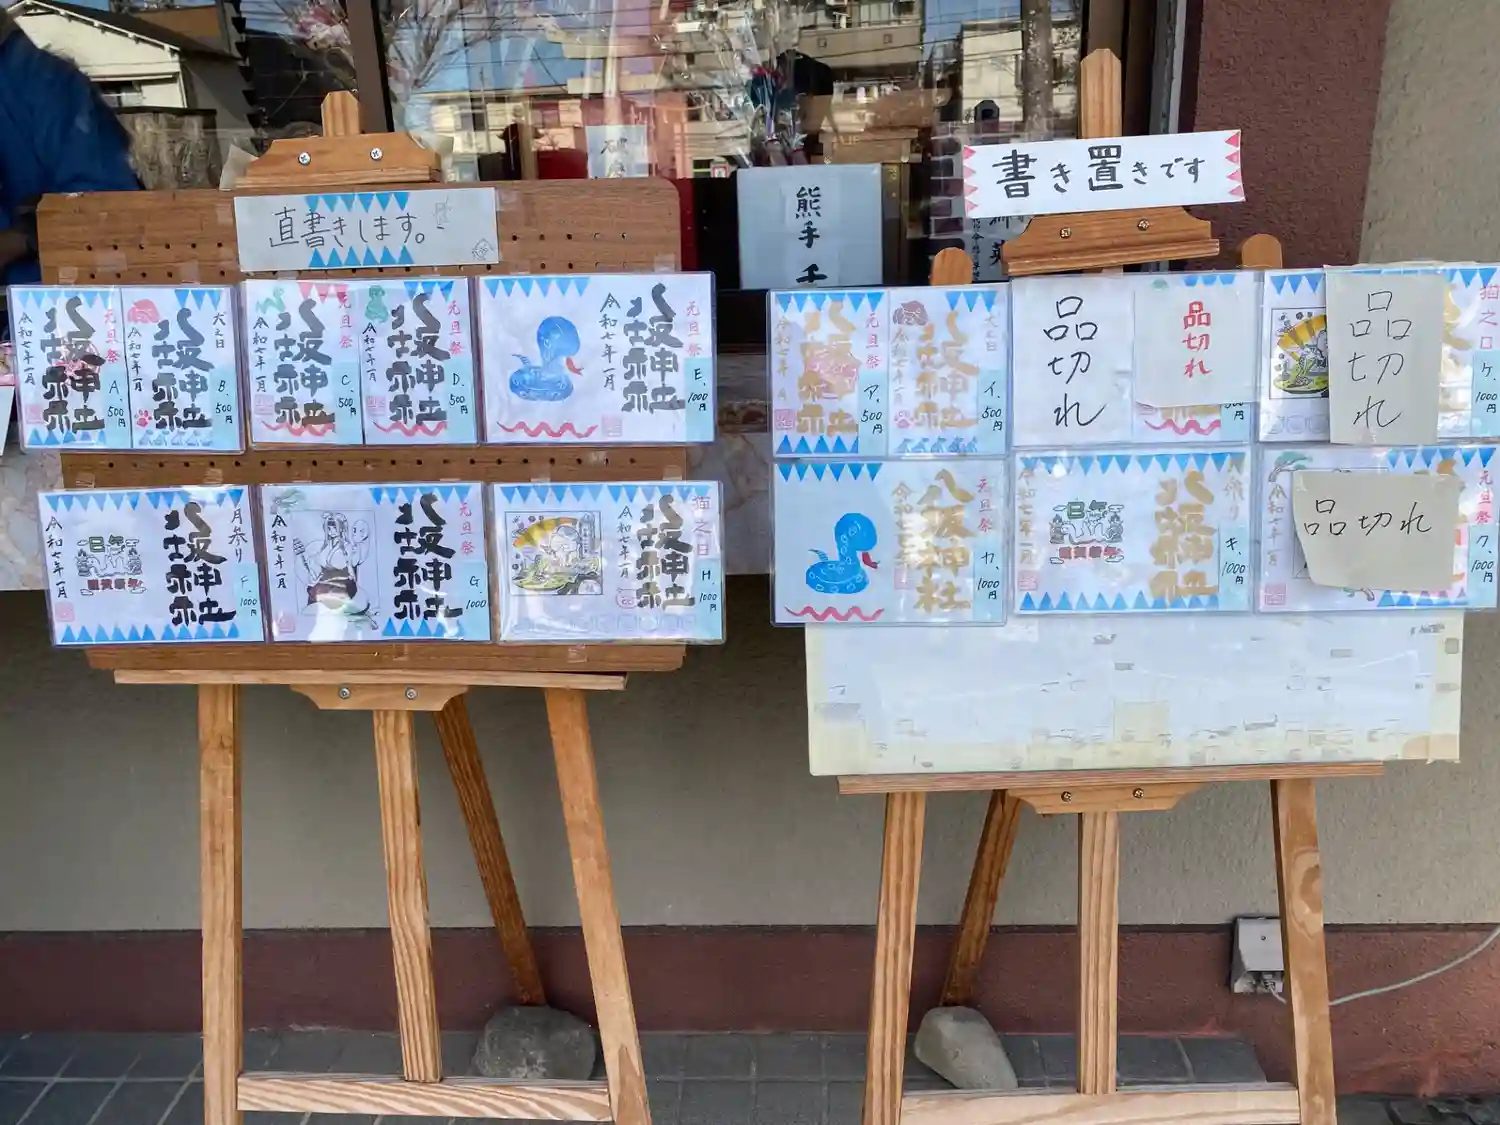 直書きします。
元旦祭
八坂神社
令和七年一月
A、500円
犬之日
八坂神社
令和七年一月
B、500円
元旦祭
八坂神社
令和七年一月
C、500円
元旦祭
八坂神社
令和七年一月
D、500円
元旦祭
八坂神社
令和七年一月
E、1000円
月参り
八坂神社
令和七年一月
F、1000円
元旦祭
八坂神社
令和七年一月
G、1000
猫之日
八坂神社
令和七年一月
H、1000円
熊手
書き置きです
元旦祭
八坂神社
令和七年一月
ア、500円
八坂神社
令和七年一月
イ、500円
品切れ
品切れ
品切れ
猫之日
ケ、1000円
元旦祭
八坂神社
カ、1000円
月参り
八坂神社
令和七年一月
キ、1000円
品切れ
元旦祭
令和七年一月
ク、1000円